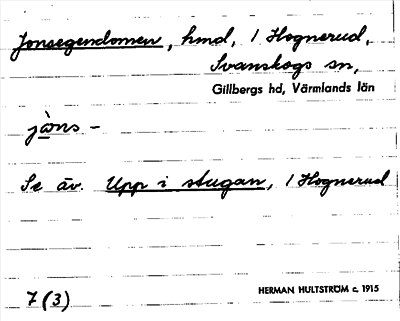 Jonsegendomen, hmd, 1 Hognerud,
Svanskogs sn,
Gillbergs hd, Värmlands län
jòns –
Se äv. Upp i stugan, 1 Hognerud
7 (3)
HERMAN HULTSTRÖM c. 1915